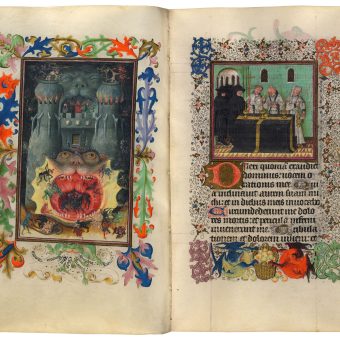 Dilexi quoniam exaudiet
dominus vocem o
rationis mee. Quia
inclinavit aurem suam mi
chi et in diebus meis invocabo
Circumdederunt me dolo
res mortis et pericula inferni
invenerunt me. Tribula
tionem et dolorem inveni et